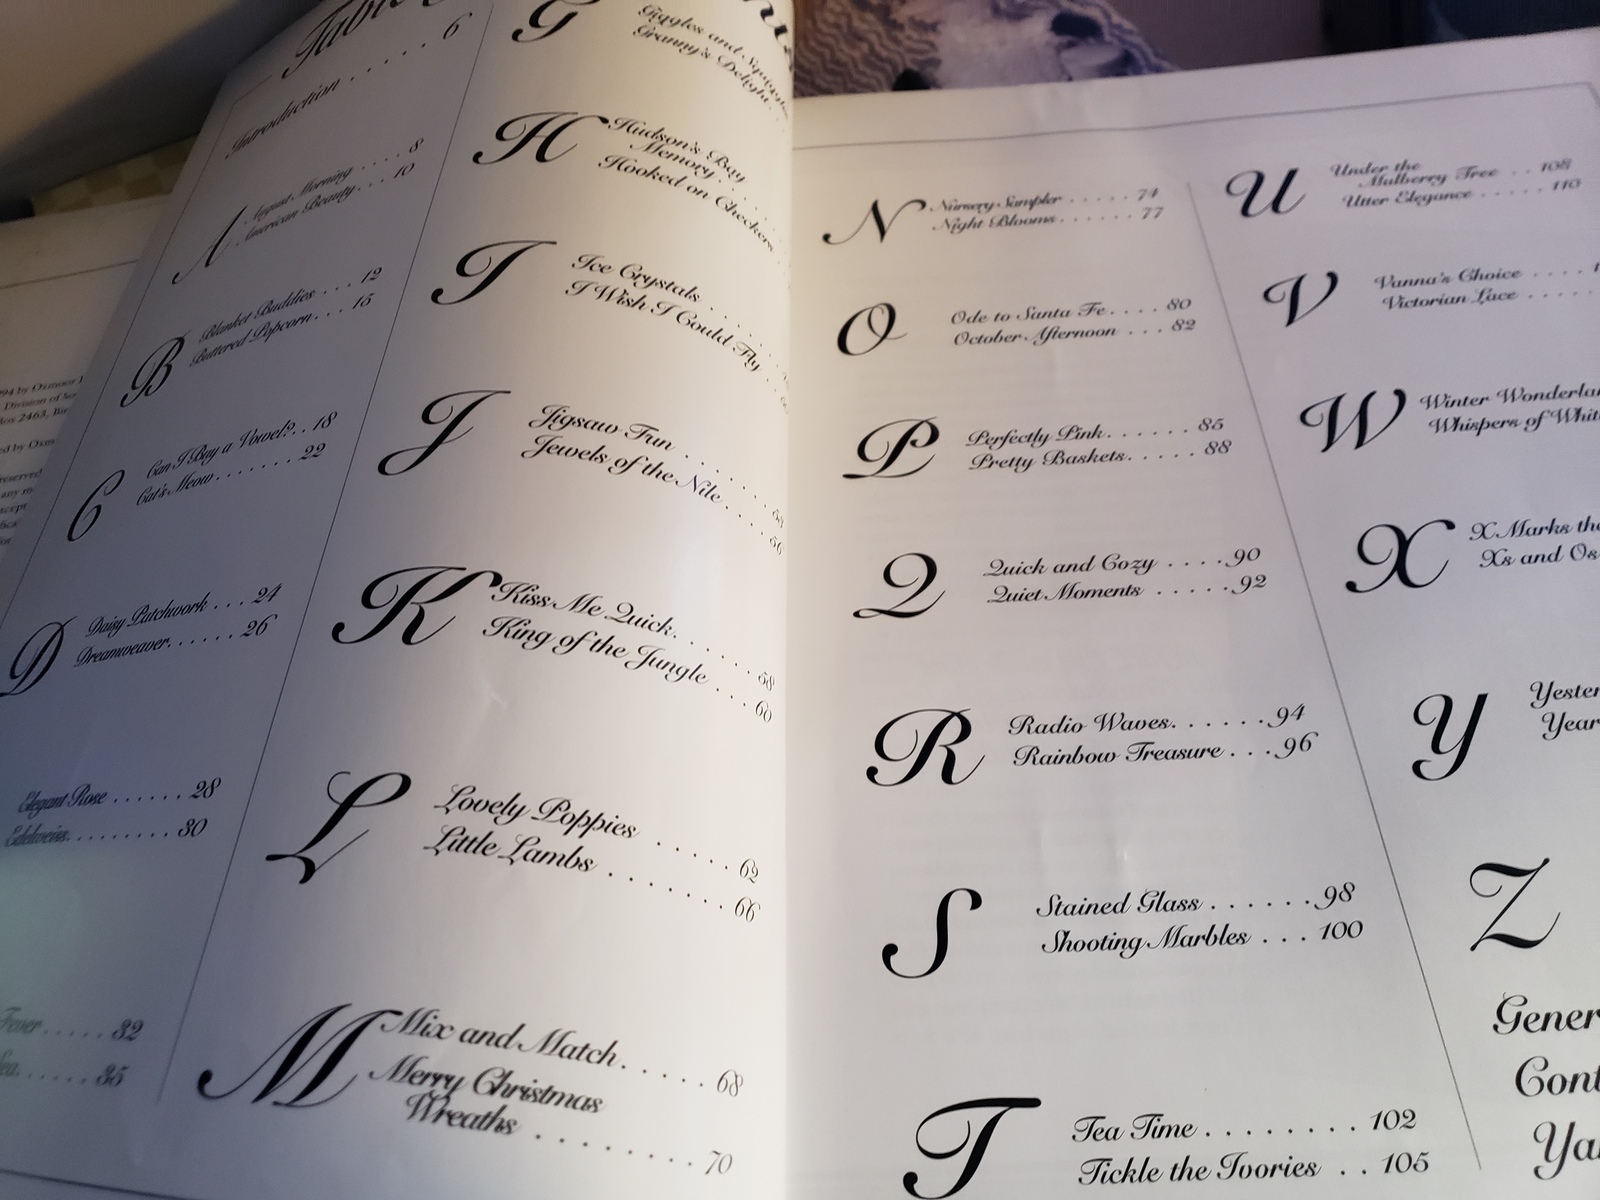 Introduction . . . . . 6
A
August Morning . . . . 8
American Beauty . . . 10
B
Blanket Buddies . . . . 12
Buttered Popcorn . . . 15
C
Can I Buy a Vowel? . . 18
Cat's Meow . . . . . . . 22
D
Daisy Patchwork . . . 24
Dreamweaver . . . . . . 26
Elegant Rose . . . . . . 28
Edelweiss . . . . . . . . 30
Fever . . . . . . 32
Sea . . . . . . . 35
G
Giggles and Squiggles
Granny's Delight
H
Hudson's Bay
Memory
Hooked on Checkers
I
Ice Crystals
I Wish I Could Fly
J
Jigsaw Fun
Jewels of the Nile . . . . 56
K
Kiss Me Quick . . . . . 58
King of the Jungle . . . 60
L
Lovely Poppies . . . . . 62
Little Lambs . . . . . . . 66
M
Mix and Match . . . . . 68
Merry Christmas
Wreaths . . . . . . . . 70
N
Nursery Sampler . . . . . 74
Night Blooms . . . . . . 77
O
Ode to Santa Fe . . . . 80
October Afternoon . . . 82
P
Perfectly Pink . . . . . . 85
Pretty Baskets . . . . . 88
Q
Quick and Cozy . . . . 90
Quiet Moments . . . . . 92
R
Radio Waves . . . . . . 94
Rainbow Treasure . . . 96
S
Stained Glass . . . . . . 98
Shooting Marbles . . . 100
T
Tea Time . . . . . . . . 102
Tickle the Ivories . . 105
U
Under the
Mulberry Tree . . 108
Utter Elegance . . . . . 110
V
Vanna's Choice
Victorian Lace
W
Winter
Whispers of
X
X Marks
Xs and Os
Y
Z